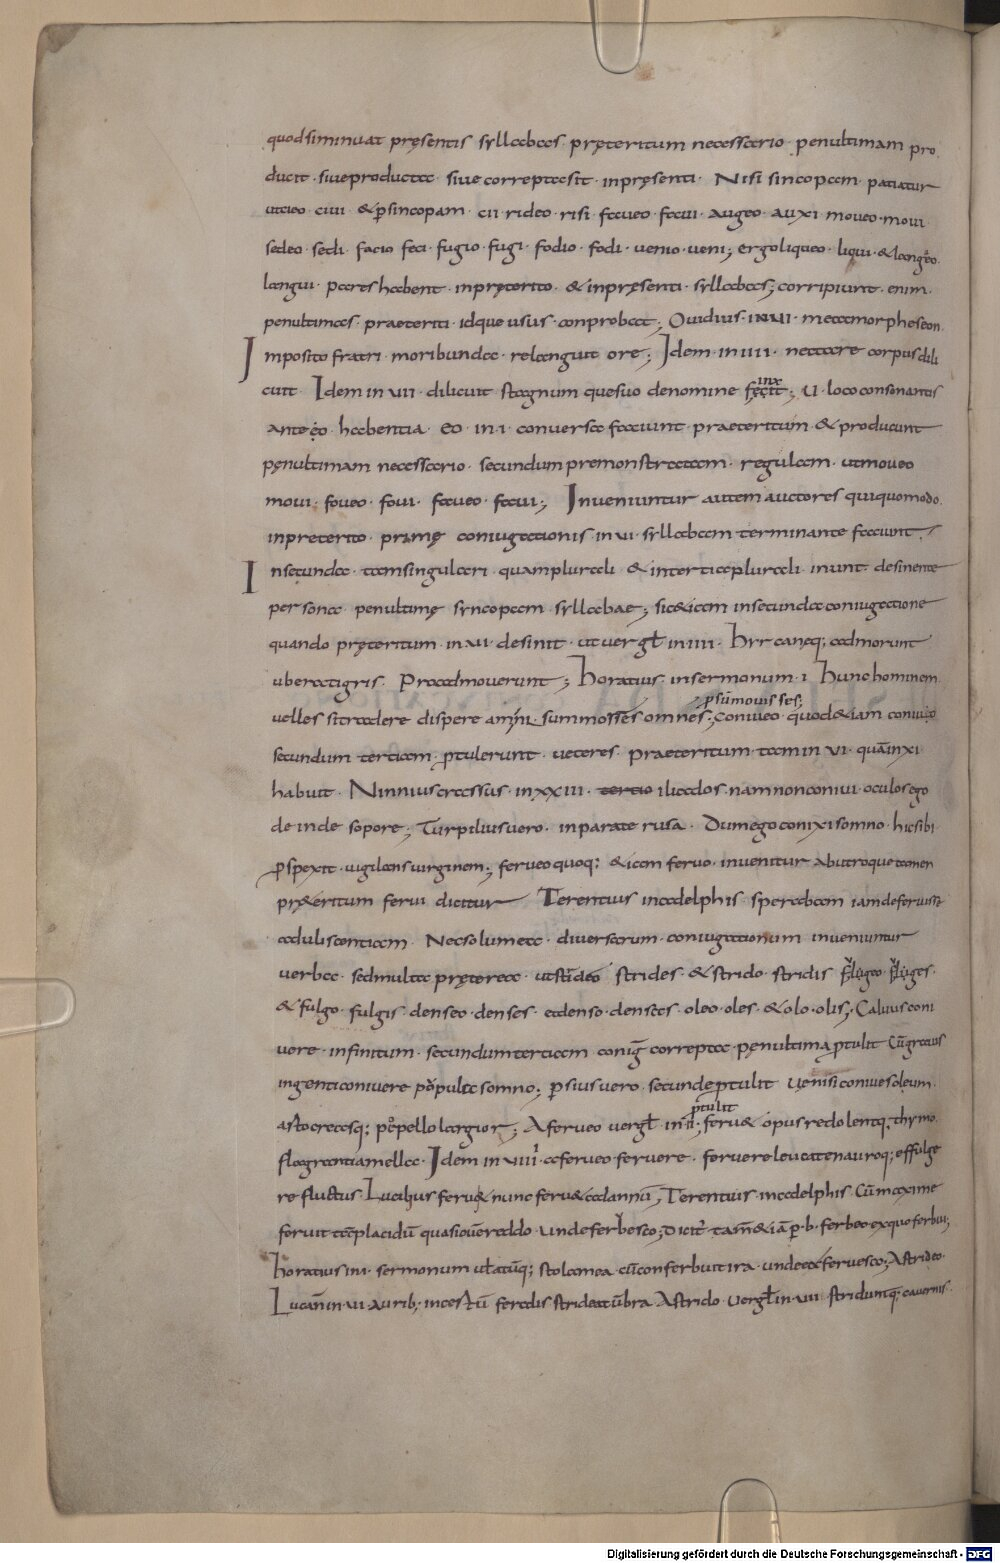 quodsiminuat pręsentis syllabas pręteritum necessario penultimam pro
ducit · siue producta siue correpta sit · inpręsenti · Nisi sincopam patiatur
utcieo · ciui · &psincopam · cii · rideo · risi · faueo · faui · augeo · auxi moueo · moui
sedeo · sedi · facio feci · fugio · fugi · fodio · fodi · uenio · ueni; ergo liqueo · liqui · & langeo
langui · pares habent · inpręterito · & inpręsenti · syllabas; corripiunt · enim ·
penultimas · praeteriti · idque usus · conprobat; Ouidius · INUI · metamorpheseon
Imposito fratri · moribunda · relanguit ore; Idem · in · iiii · nectare corpus dili
cuit · Idem in uii · dilicuit stagnum quesuo denomine fęcit inx; U · loco consonantis
ante eo habentia · eo · in · i · conuersa faciunt · praeteritum & producunt
pęnultimam necessario · secundum premonstratam · regulam · utmoueo
moui · foueo · foui · faueo · faui; Inueniuntur autem auctores quiquomodo
inpreterito · primę coniugationis in ui · syllabam terminante faciunt ·
Insecunda tam singulari quam plurali & intertia plurali inunt desinente
persona penultimę syncopam syllabae; sic&iam insecunda coniugatione
quando pręteritum in ui · desinit · ut uergł in iiii · hyrcaneq; admorunt
ubera tigris · Pro admouerunt; horatius · insermonum · i · hunc hominem
uelles sitradere dispere amni · summosses omnes; psūmouisses; Conuieo · quod&iam conuio
secundum tertiam ptulerunt · ueteres · praeteritum tam in ui · quā inxi
habuit · Ninnius crassus · in xxiii · tertio iliados · nam non coniui · oculos ego
deinde sopore; Turpilius uero · inparaterusa · Dum ego conixi somno · hicsibi
pspexit · uigilans uirginem; ferueo quoq; &iam feruo · inuenitur abutroque tamen
pr&eritum ferui dicitur Terentius in adelphis · sperabam iam deferuisse
aduliscentiam · Nec solum ea · diuersarum · coniugationum inueniuntur
uerba · sed multa pręterea · ut strideo strides · & strido · stridis fulgeo · fulges ·
& fulgo · fulgis · denseo · denses · & denso · densas oleo · oles · & olo · olis; · Caluus coni
uere · infinitum · secundum tertiam coniug̅ correpta · pęnultima ptulit Cū grauis
ingenti coniuere pōpula somno; psius uero · secunde ptulit uenisi coniues oleum
astocreasq; pōpello largior; Aferueo uergł in ii · ptulit; feru& opus redolentq; thymo
flagrantia mella · Idem in uiiii · aferueo feruere · feruere leucaten auroq; effulge
re fluctus · Lucilius feru& nunc feru& adannū; Terentius inadelphis Cū maxime
feruit tā placidū quasi ouē reddo · unde ferbesco; Dicit̄ tam̄ &iā p · b · ferbeo ex quo ferbui;
horatius in · sermonum uł atūq; stolamea cū conferbuit ira · unde & feruesco; Astrideo ·
Lucan̄ in · ui · aurib; incestū ferdis stridet ūbra Astrido · uergł in · uii · stridunt q; cauernis ·
Digitalisierung gefördert durch die Deutsche Forschungsgemeinschaft - DFG